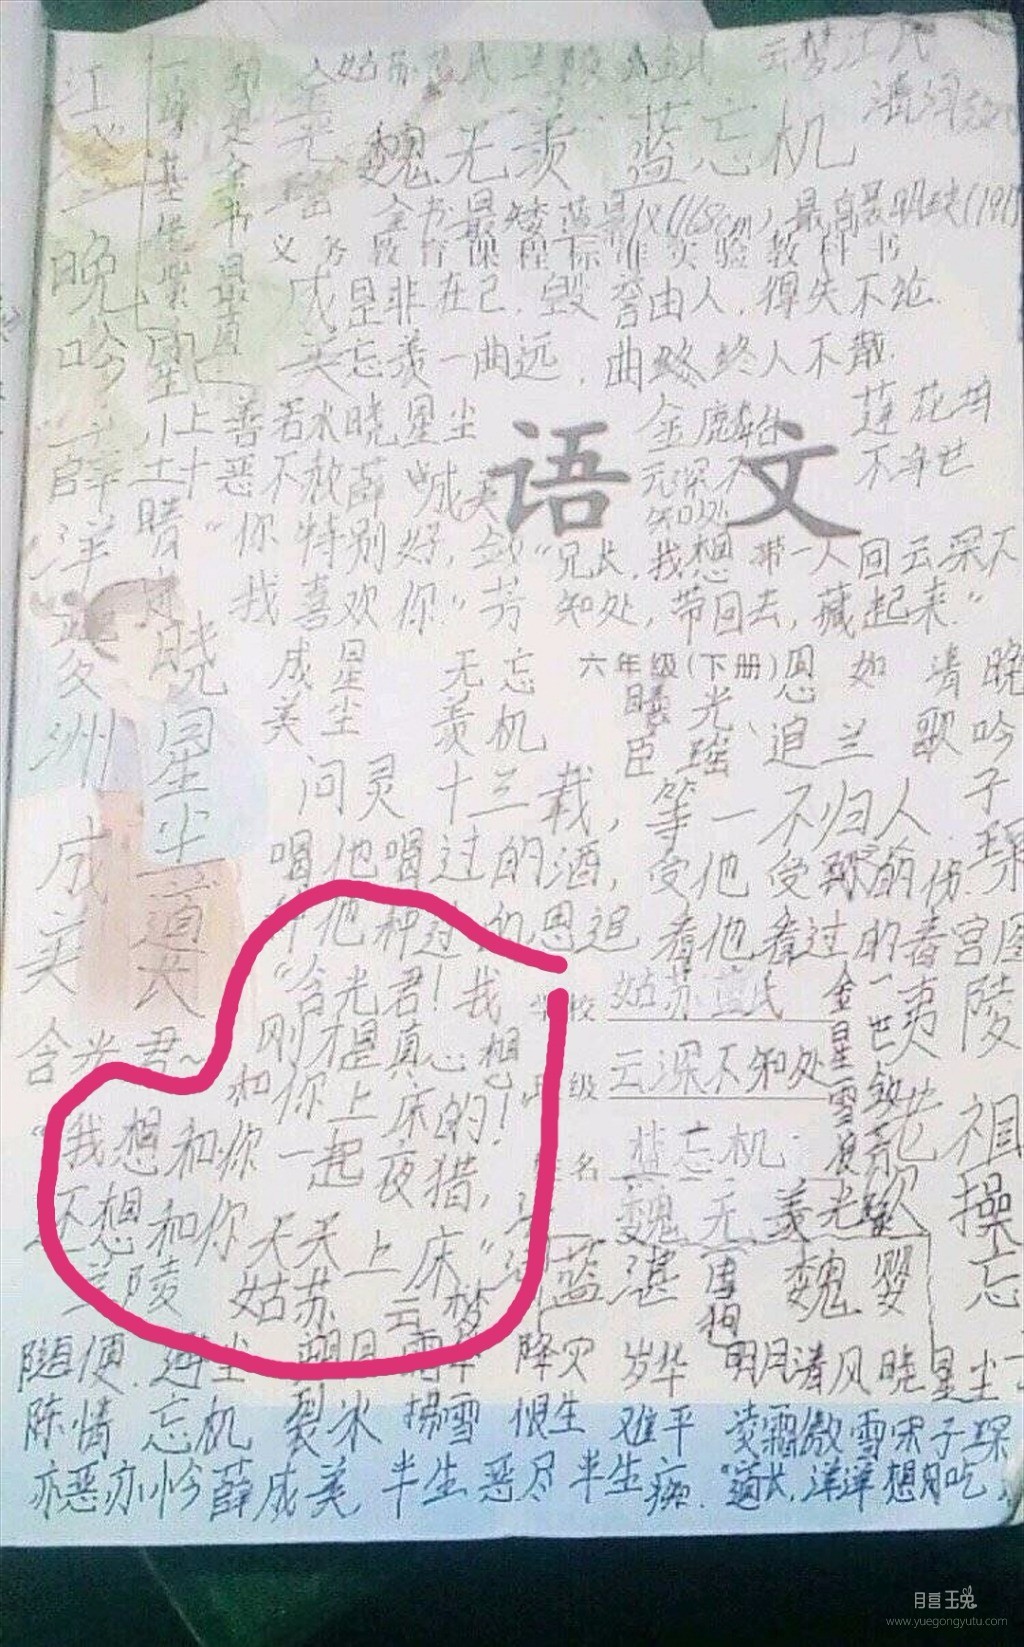 姑苏蓝氏 云梦江氏
清河
魏无羡 蓝忘机
江
晚
吟
薛
洋
夔
州
成
美
金
光
瑶
全书最矮蓝景仪(168cm),最高聂明玦(191
义务教育课程标准实验教科书
是非在己,毁誉由人,得失不论.
忘羡一曲远,曲终人不散.
上善若水晓星尘
金麟台
莲花坞
十恶不赦薛成美
不净世
语文
云深不知处
"你特别好,
我喜欢你."
"兄长,我想带一人回云深不
知处,带回去,藏起来."
晓
星
尘
道
长
六年级(下册)
成美
星尘
无羡
忘机
光瑶
恩追
如兰
清歌
晚吟
子琛
问灵十三载,等一不归人
喝他喝过的酒,受他受的伤.
他种过的 恩追 看他看过的春宫图
"含光君!我
刚才是真
想和你上床的!
含光君~
学校 姑苏蓝氏
班级 云深不知处
姓名 蓝忘机
金星雪浪
夷陵老祖
"我想和你一起夜猎,
不想和你天天上床"
兰陵 姑苏 云梦
魏无羡
蓝湛 魏婴
随便 避尘 朔月 霜华 降灾 岁华 明月清风晓星尘
陈情 忘机 裂冰 拂雪 恨生 难平 凌霜傲雪宋子琛
亦恶亦怜薛成美 半生恶尽半生痴. "道长,洋洋想月吃
月宫玉兔
www.yuegongyutu.com